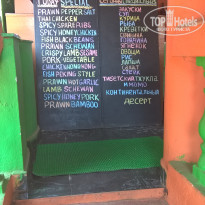 TODAY SPECIAL
PRAWN PEPPER SALT
THAI CHICKEN
SPICY SPARE RIBS
SPICY HONEY CHICKEN
FISH BLACK BEANS
PRAWN SCHEWAN
CRISPY LAMB SESAMI
PORK VEGETABLE
CHICKEN HONG KONG
FISH PEKING STYLE
PRAWN HOT GARLIC
LAMB SCHEWAN
SPICY HONEY PORK
PRAWN BAMBOO
ЗАКУСКИ
СУП
КУРИЦА
РЫБА
КРЕВЕТКИ
СВИНИНА
ГОВЯДИНА
ЯГНЕНОК
ОВОЩИ
РИС
ЛАПША
САЛАТ
СТЕИК
И МОМО
КОНТИНЕНТАЛЬНЫЙ
ДЕСЕРТ
TopHotels